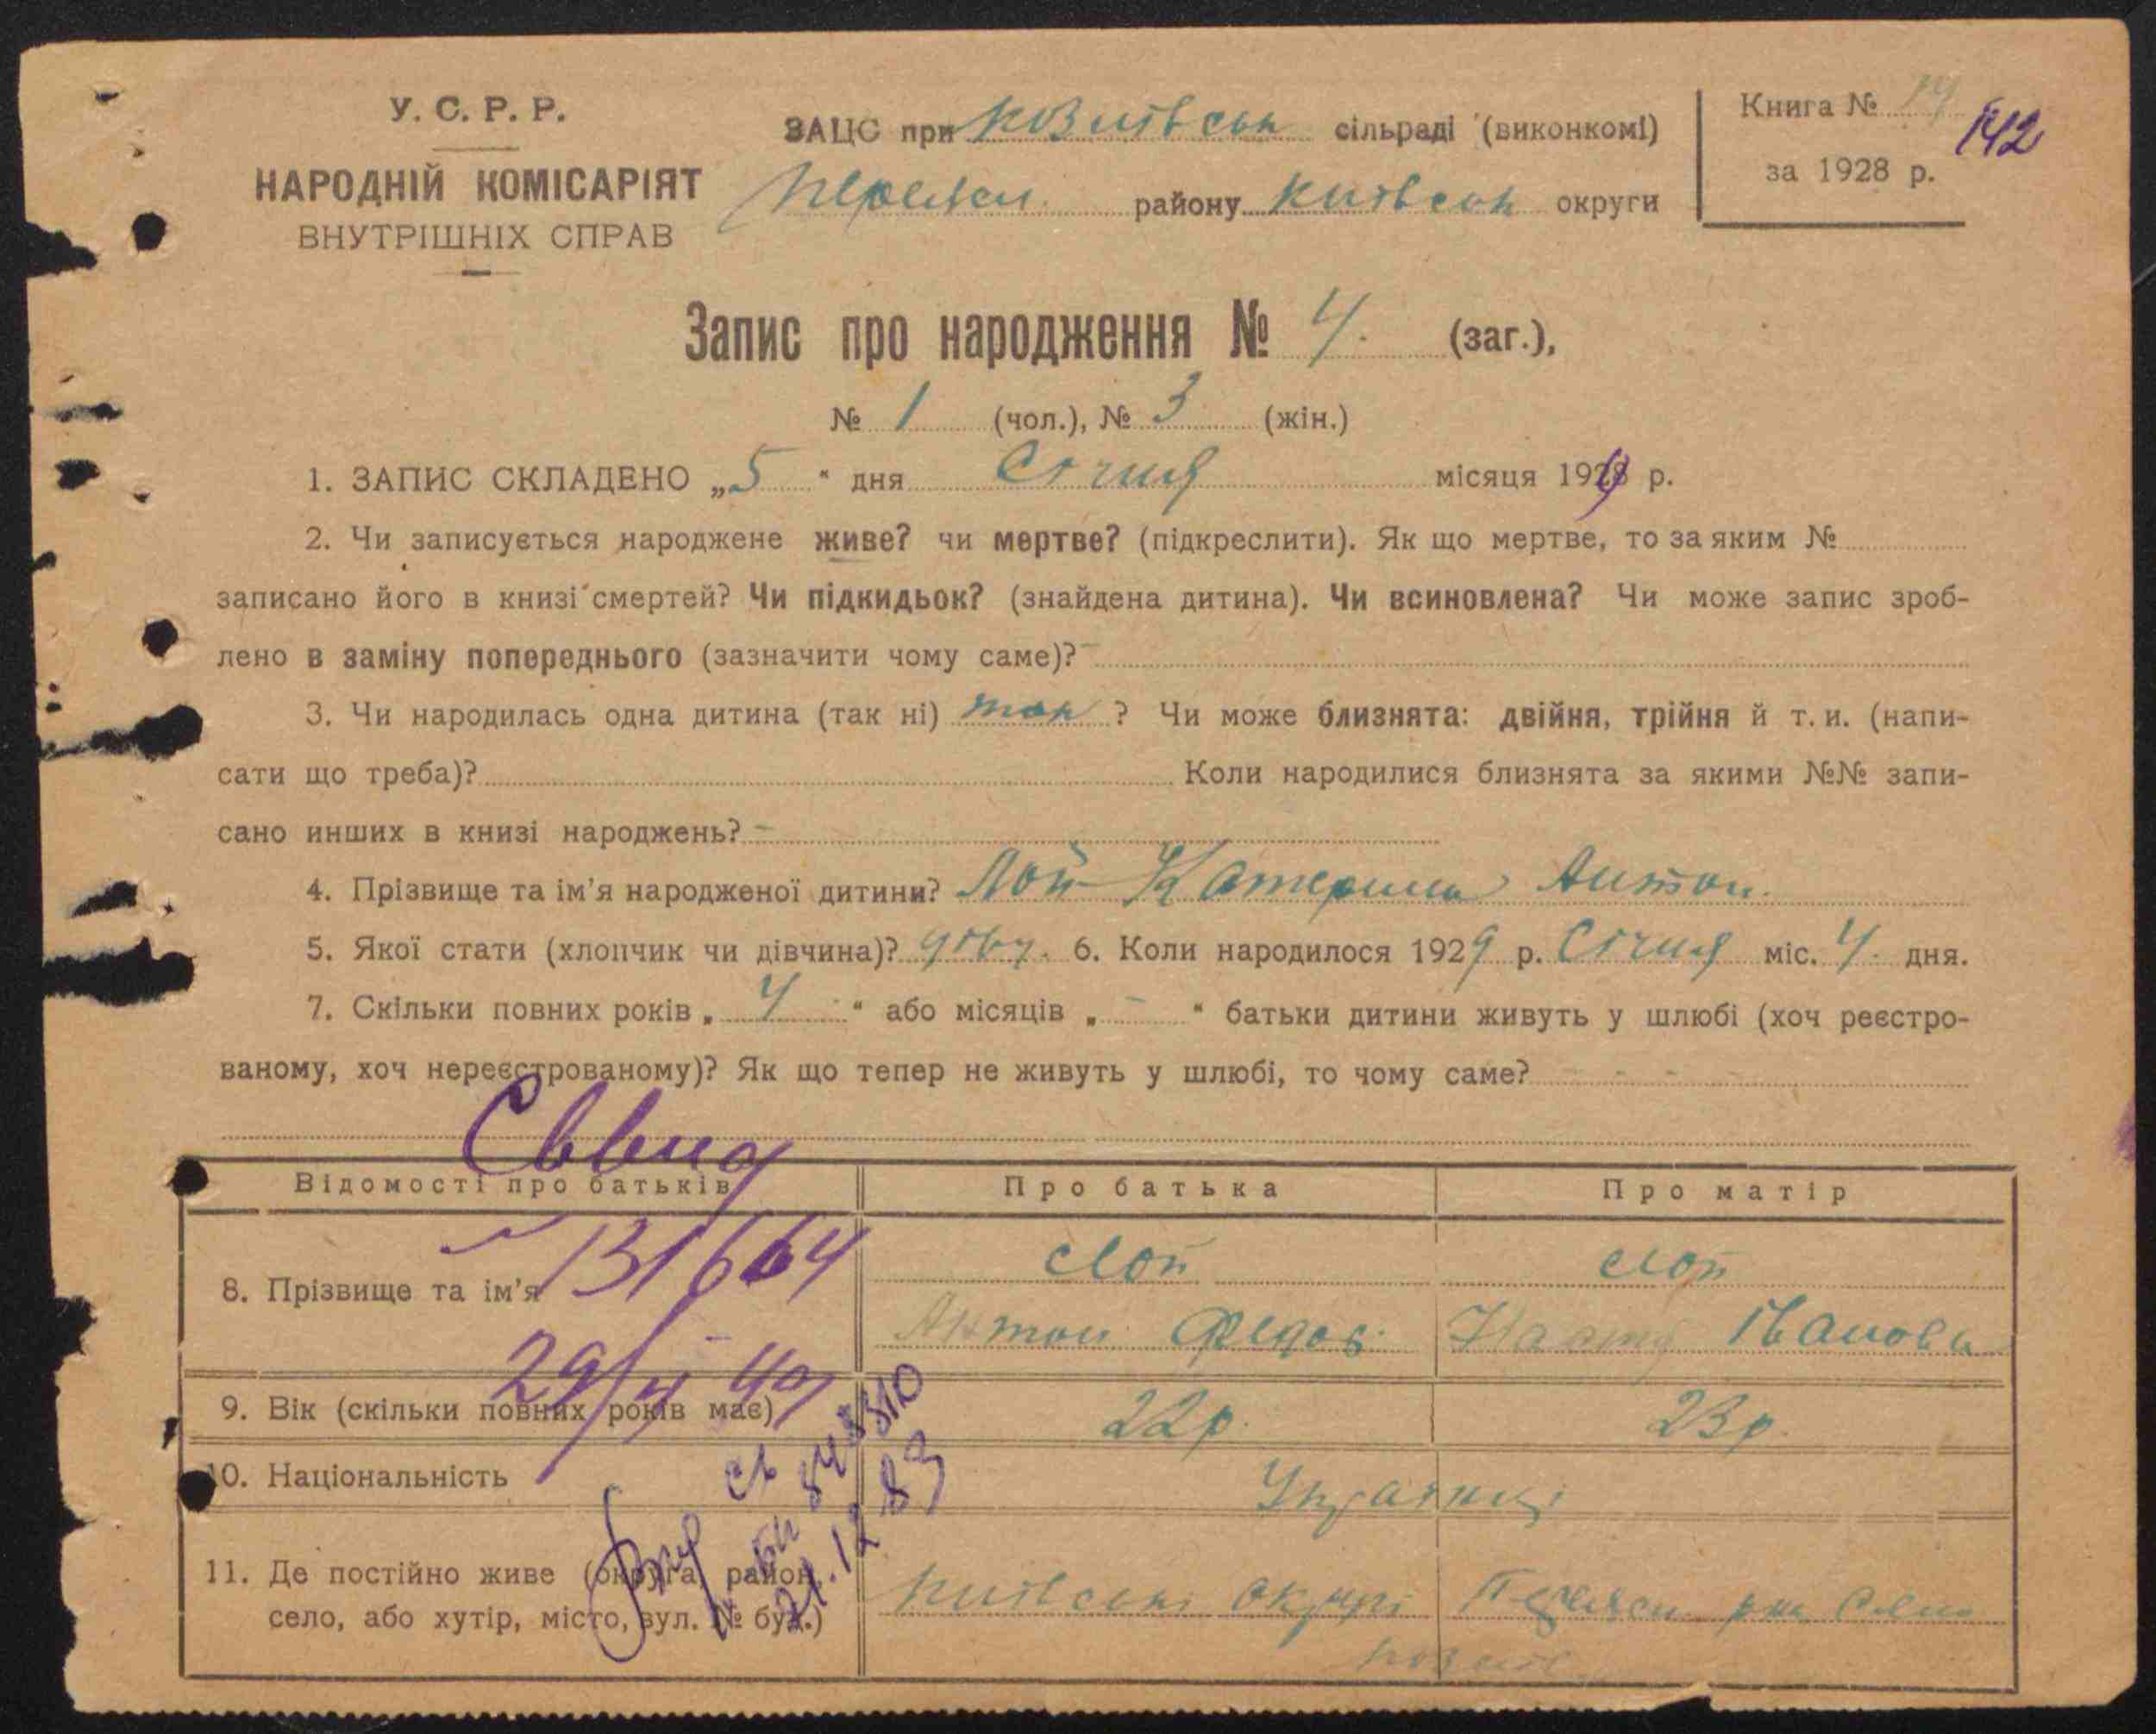 У. С. Р. Р.
НАРОДНІЙ КОМІСАРІЯТ
ВНУТРІШНІХ СПРАВ
ЗАЦС при сільраді (виконкомі)
району Київськ округи
Книга № 142
за 1928 р.
Запис про народження № 4. (заг.),
№ 1 (чол.), № 3 (жін.)
1. ЗАПИС СКЛАДЕНО „5" дня Січня місяця 1929 р.
2. Чи записується народжене живе? чи мертве? (підкреслити). Як що мертве, то за яким №
записано його в книзі смертей? Чи підкидьок? (знайдена дитина). Чи всиновлена? Чи може запис зроб-
лено в заміну попереднього (зазначити чому саме)? -
3. Чи народилась одна дитина (так ні) так ? Чи може близнята: двійня, трійня й т. и. (напи-
сати що треба)? Коли народилися близнята за якими №№ запи-
сано инших в книзі народжень? -
4. Прізвище та ім'я народженої дитини? Лой Катерина Антон.
5. Якої стати (хлопчик чи дівчина)? дівч. 6. Коли народилося 1929 р. Січня міс. 4. дня.
7. Скільки повних років „ 4 " або місяців „ - " батьки дитини живуть у шлюбі (хоч реєстро-
ваному, хоч нереєстрованому)? Як що тепер не живуть у шлюбі, то чому саме? - - - -
Відомості про батьків Про батька Про матір
131664
8. Прізвище та ім'я Лой Лой
Антон Федов. Настя Іванова
9. Вік (скільки повних років має) 22р. 23р.
10. Національність Українці
11. Де постійно живе (округа, район,
село, або хутір, місто, вул. № буд.) Київські округи
21.12.83